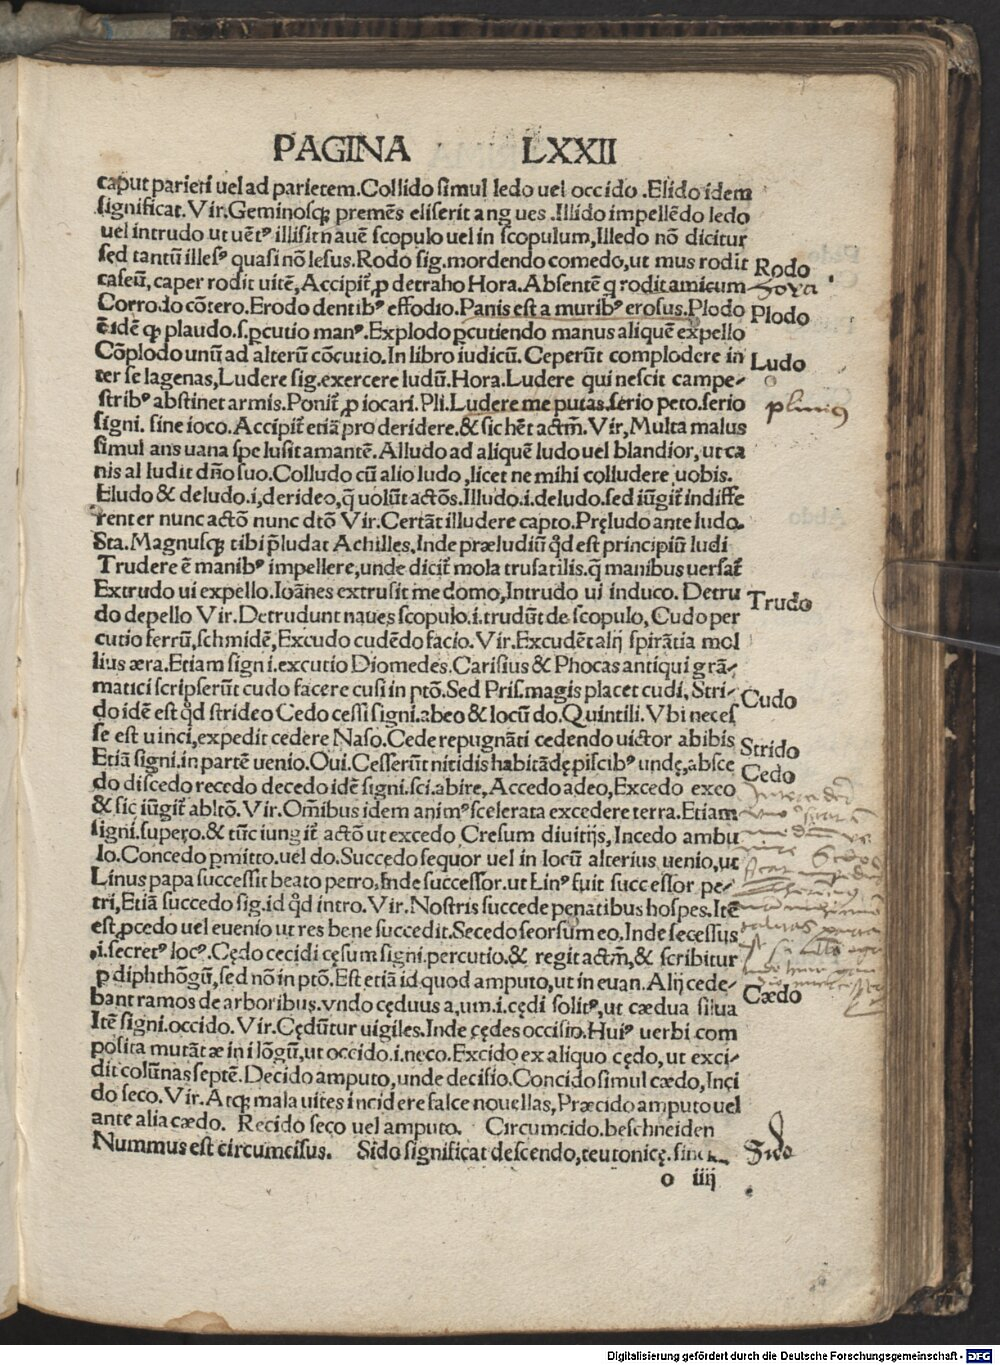 PAGINA LXXII
caput parieti uel ad parietem. Collido simul ledo uel occido. Elido idem
significat. Vir. Geminosqꝫ premēs eliserit angues. Illido impellēdo ledo
uel intrudo ut uētꝰ illisit nauē scopulo uel in scopulum, Illedo nō dicitur
sed tantū illesꝰ quasi nō lesus. Rodo sig. mordendo comedo, ut mus rodit
Rodo
caseū, caper rodit uitē, Accipit̄ ꝓ detraho Hora. Absentē q rodit amicum
Hora
Corrodo cōtero. Erodo dentibꝰ effodio. Panis est a muribꝰ erosus. Plodo
Plodo
ē idē qp̄ plaudo. s. ꝑcutio manꝰ. Explodo ꝑcutiendo manus aliquē expello
Cōplodo unū ad alterū cōcutio. In libro iudicū. Ceperūt complodere in
Ludo
ter se lagenas, Ludere sig. exercere ludū. Hora. Ludere qui nescit campe-
stribꝰ abstinet armis. Ponit̄ ꝓ iocari. Pli. Ludere me putas. serio peto. serio
plinius
signi. sine ioco. Accipit̄ etiā pro deridere. & sic hēt actm̄. Vir, Multa malus
simul ans uana spe lusit amantē. Alludo ad aliquē ludo uel blandior, ut ca
nis alludit dn̄o suo. Colludo cū alio ludo, licet ne mihi colludere uobis.
Eludo & deludo. i, derideo, q̄ uolūt actōs. Illudo. i. deludo. sed iūgit̄ indiffe
renter nunc actō nunc dtō Vir. Certāt illudere capto. Pręludo ante ludo.
Sta. Magnusqꝫ tibi p̄ludat Achilles, Inde præludiū q̄d est principiū ludi
Trudere ē manibꝰ impellere, unde dicit̄ mola trusatilis. q̄ manibus uersat̄
Extrudo ui expello. Ioānes extrusit me domo, Intrudo ui induco. Detru
Trudo
do depello Vir. Detrudunt naues scopulo. i. trudūt de scopulo, Cudo per
cutio ferrū, schmidē, Excudo cudēdo facio. Vir. Excudēt alij spirātia mol
lius æra. Etiam signi. excutio Diomedes. Carisius & Phocas antiqui grā-
matici scripserūt cudo facere cusi in ptō. Sed Pris. magis placet cudi, Stri-
Cudo
do idē est q̄d strideo Cedo cessi signi. abeo & locū do. Quintili. Vbi neces
se est uinci, expedit cedere Naso. Cede repugnāti cedendo uictor abibis
Strido
Etiā signi. in partē uenio. Oui. Cesserūt nitidis habitādę piscibꝰ undę, absce
Cedo
do discedo recedo decedo idē signi. sci. abire, Accedo adeo, Excedo exeo
& sic iūgit̄ abltō. Vir. Om̄ibus idem animꝰ scelerata excedere terra. Etiam
signi. supero. & tūc iungit̄ actō ut excedo Cresum diuitijs, Incedo ambu
lo. Concedo ꝑmitto. uel do. Succedo sequor uel in locū alterius uenio, ut
Linus papa successit beato petro, Inde successor. ut Linꝰ fuit successor pe-
tri, Etiā succedo sig. id q̄d intro. Vir. Nostris succede penatibus hospes. Itē
est, ꝓcedo uel euenio ut res bene succedit. Secedo seorsum eo. Inde secessus
. i. secretꝰ locꝰ. Cędo cecidi cęsum signi. percutio. & regit actm̄, & scribitur
ꝑ diphthōgū, sed nō in ptō. Est etiā id quod amputo, ut in euan. Alij cede-
bant ramos de arboribus. vndo cęduus a, um. i. cędi solitꝰ, ut cædua silua
Cædo
Itē signi. occido. Vir. Cędūtur uigiles. Inde cędes occisio. Huiꝰ uerbi com
posita mutāt æ in i lōgū, ut occido. i. neco. Excido ex aliquo cędo, ut exci-
dit colūnas septē. Decido amputo, unde decisio. Concido simul cædo, Inci
do seco. Vir. Atqꝫ mala uites incidere falce nouellas, Præcido amputo uel
ante alia cædo. Recido seco uel amputo. Circumcido. beschneiden
Nummus est circumcisus. Sido significat descendo, teutonicę. sinck
Sido
o iiij
Digitalisierung gefördert durch die Deutsche Forschungsgemeinschaft - DFG